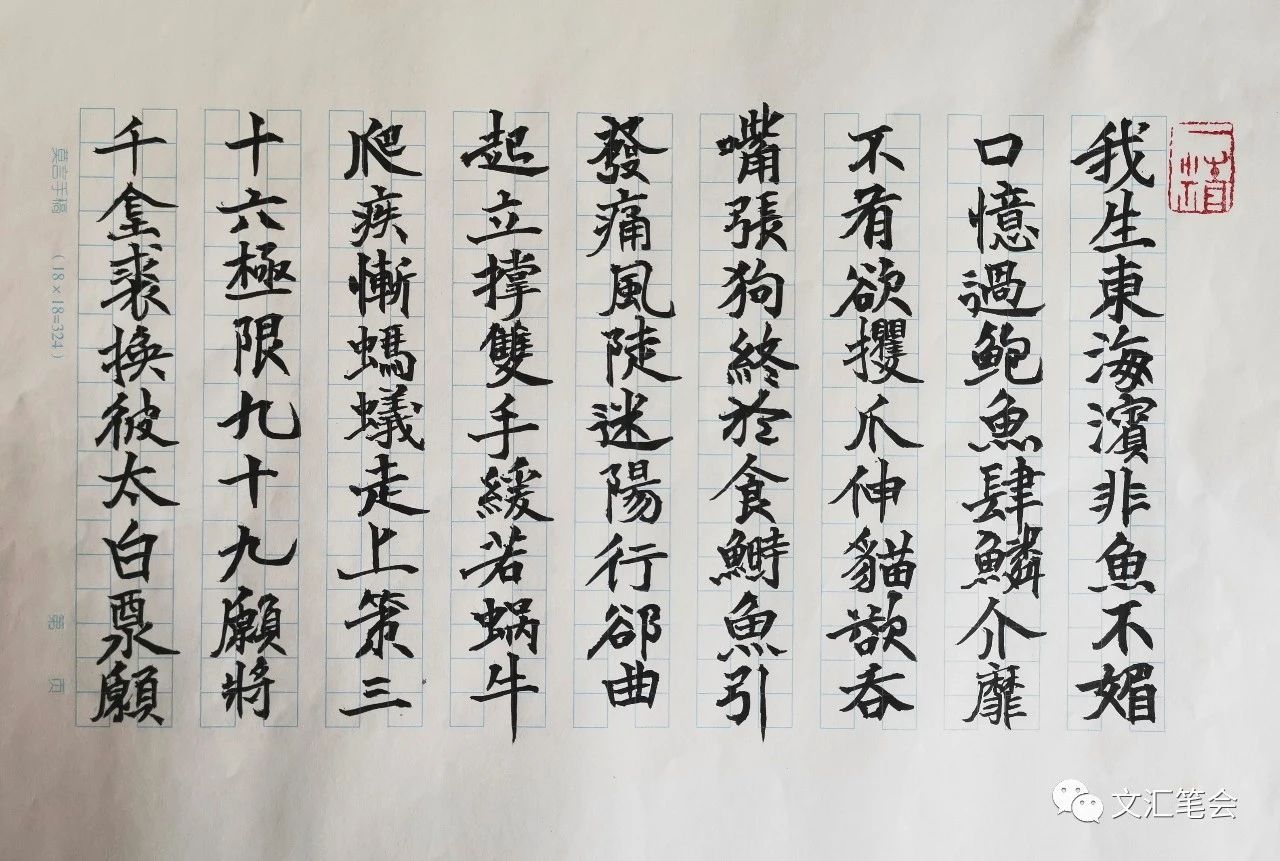 我生東海濱非魚不媚
口憶過鮑魚肆鱗介靡
不有欲攫爪伸貓欲吞
嘴張狗終於食鰣魚引
發痛風陡迷陽行郤曲
起立撐雙手緩若蝸牛
爬疾慚螞蟻走上策三
十六極限九十九願將
千金裘換彼太白酒願
莫言手稿（18×18=324） 第 页
文汇笔会